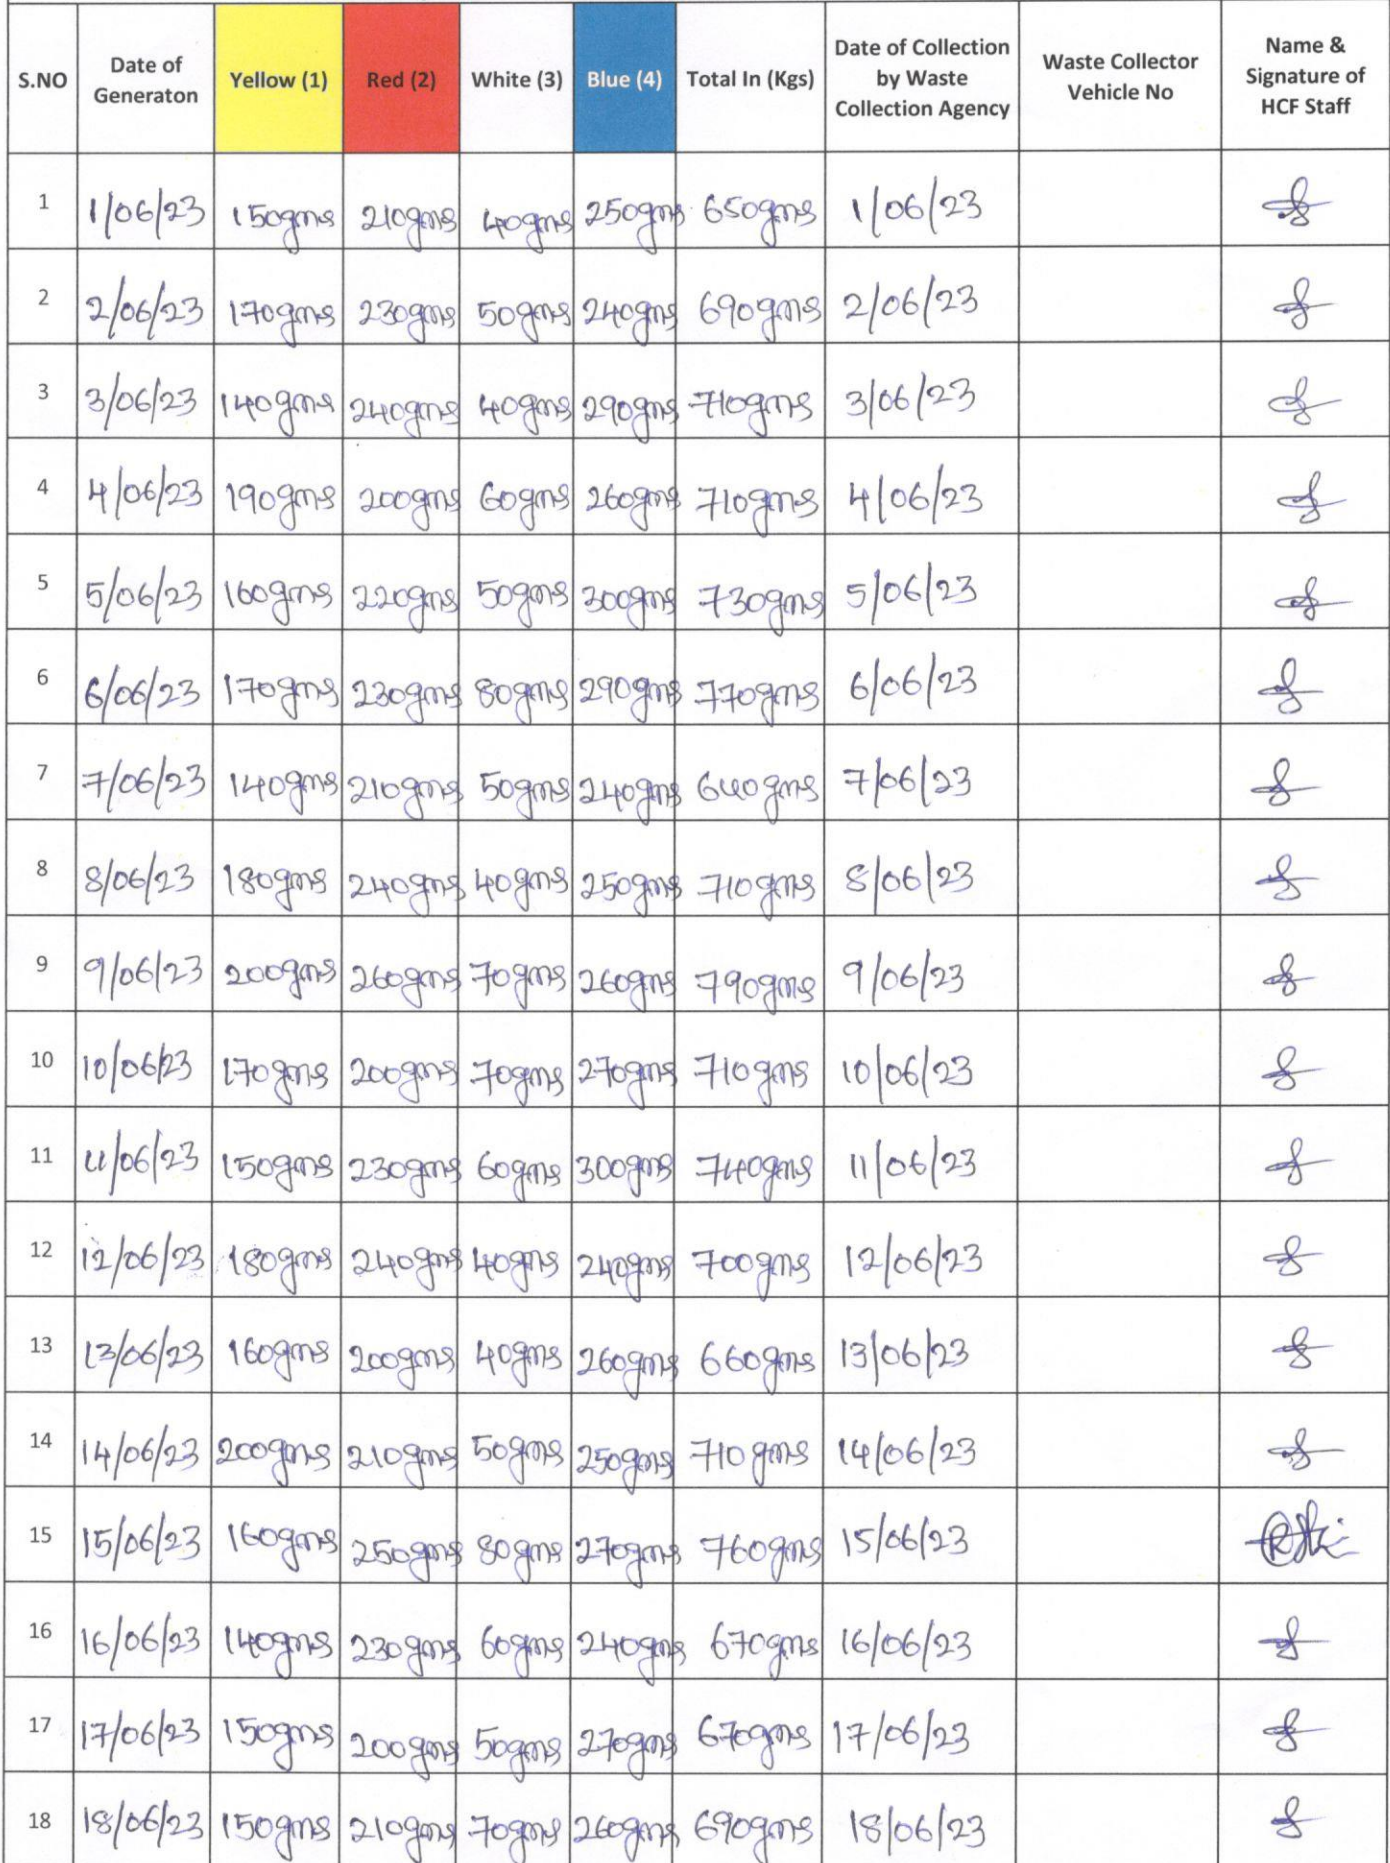 S.NO Date of Generaton Yellow (1) Red (2) White (3) Blue (4) Total In (Kgs) Date of Collection by Waste Collection Agency Waste Collector Vehicle No Name & Signature of HCF Staff
1 1/06/23 150gms 210gms 40gms 250gms 650gms 1/06/23
2 2/06/23 170gms 230gms 50gms 240gms 690gms 2/06/23
3 3/06/23 140gms 240gms 40gms 290gms 710gms 3/06/23
4 4/06/23 190gms 200gms 60gms 260gms 710gms 4/06/23
5 5/06/23 160gms 220gms 50gms 300gms 730gms 5/06/23
6 6/06/23 170gms 230gms 80gms 290gms 770gms 6/06/23
7 7/06/23 140gms 210gms 50gms 240gms 640gms 7/06/23
8 8/06/23 180gms 240gms 40gms 250gms 710gms 8/06/23
9 9/06/23 200gms 260gms 70gms 260gms 790gms 9/06/23
10 10/06/23 170gms 200gms 70gms 270gms 710gms 10/06/23
11 11/06/23 150gms 230gms 60gms 300gms 740gms 11/06/23
12 12/06/23 180gms 240gms 40gms 240gms 700gms 12/06/23
13 13/06/23 160gms 200gms 40gms 260gms 660gms 13/06/23
14 14/06/23 200gms 210gms 50gms 250gms 710gms 14/06/23
15 15/06/23 160gms 250gms 80gms 270gms 760gms 15/06/23
16 16/06/23 140gms 230gms 60gms 240gms 670gms 16/06/23
17 17/06/23 150gms 200gms 50gms 270gms 670gms 17/06/23
18 18/06/23 150gms 210gms 70gms 260gms 690gms 18/06/23